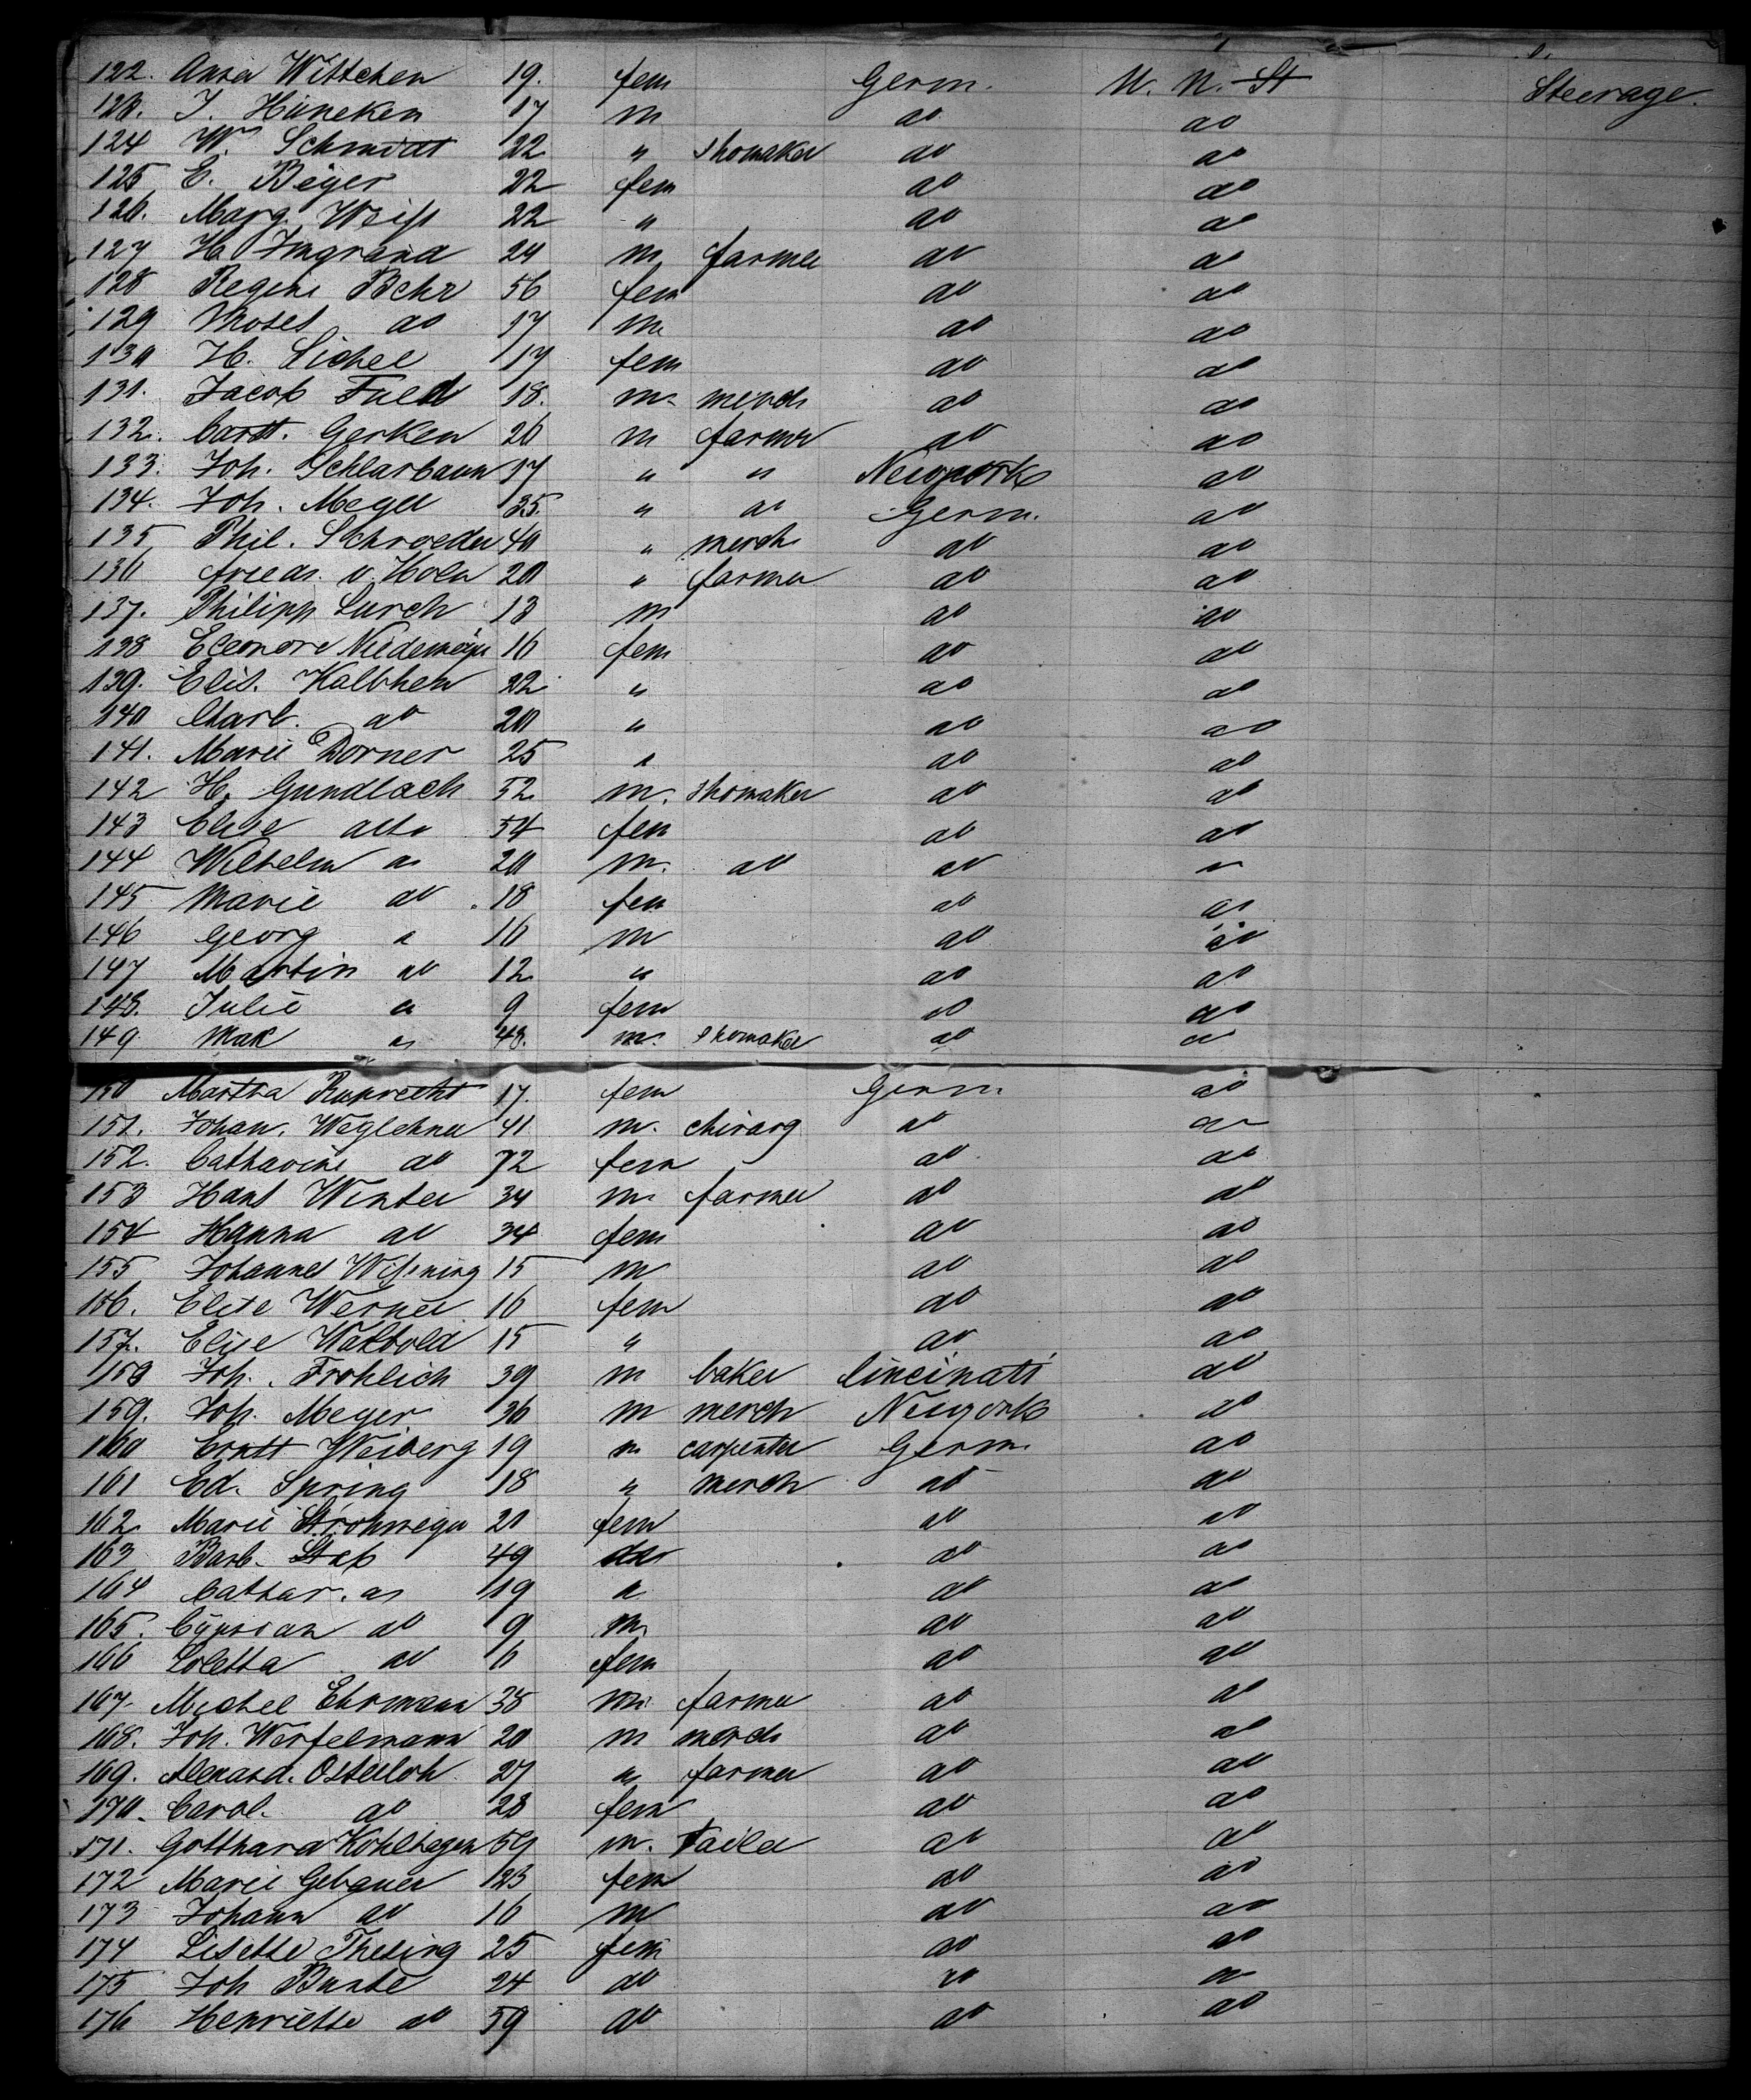 122. Anna Wittchen 19. fem Germ. U. N. St Steerage.
123. J. Hüneken 17 m do do
124 W. Schmidt 22 " shomaker do do
125 E. Beyer 22 fem do do
126. Marg. Weiss 22 " do do
127 H. Imgrand 24 m farmer do do
128 Regine Behr 56 fem do do
129 Moses do 17 m do do
130 H. Sichel 17 fem do do
131. Jacob Fuld 18. m merch do do
132. Carst. Gerken 26 m farmer do do
133. Joh. Schlarbaum 37 " " Newyork do
134. Joh. Meyer 35. " do Germ. do
135 Phil. Schroeder 40 " merch do do
136 Friedr. v. Holn 20 " farmer do do
137. Philipp Lurch 13 m do do
138 Eleonore Niedemeyer 16 fem do do
139. Elis. Kalbhen 22 " do do
140 Charl. do 20 " do do
141. Marie Dorner 25 " do do
142 H. Gundlach 52 m. shomaker do do
143 Elise ditto 54 fem do do
144 Wilhelm do 20 m. do do do
145 Marie do 18 fem do do
146 Georg " 16 m do do
147 Martin do 12 " do do
148. Julie do 9 fem do do
149 Max do 48. m. shomaker do do
150 Martha Ruprecht 17. fem Germ. do
151. Johan. Weglehner 41 m. chirurg do do
152. Catharine do 72 fem do do
153 Hans Winter 34 m. farmer do do
154 Hanna do 34 fem do do
155 Johannes Wissning 15 m do do
156. Elise Werner 16 fem do do
157. Elise Watbold 15 " do do
158 Joh. Frohlich 39 m baker Cincinati do
159. Joh. Meyer 36 m merch Newyork do
160 Ernst Weiberg 19 m carpenter Germ. do
161 Ed. Spring 18 " merch do do
162 Marie Strohmeyer 20 fem do do
163 Barb. Stab 49 do do do
164 Cathar. do 19 " do do
165. Cyprian do 9 m do do
166 Loletta do 6 fem do do
167. Michel Ehrmann 38 m. farmer do do
168. Joh. Werfelmann 20 m merch do do
169. Menard. Osterloh 27 " farmer do do
170. Carol. do 28 fem do do
171. Gotthard Kohlhagen 59 m. Tailer do do
172 Marie Gebauer 23 fem do do
173 Johann do 16 m do do
174 Lisette Thesing 25 fem do do
175 Joh Bunte 24 do do do
176 Henriette do 59 do do do